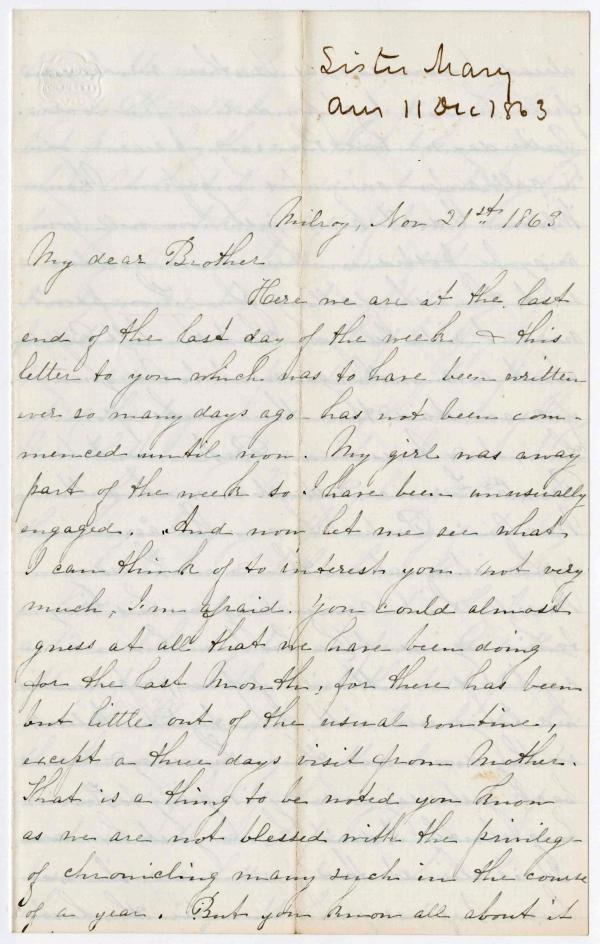 Sister Mary
Ans 11 Dec 1863
Milroy, Nov 21st 1863
My dear Brother
Here we are at the last
end of the last day of the week & this
letter to you which was to have been written
ever so many days ago - has not been com-
menced until now. My girl was away
part of the week so I have been unusually
engaged. And now let me see what
I can think of to interest you not very
much, I'm afraid. You could almost
guess at all that we have been doing
for the last Month, for there has been
but little out of the usual routine,
except a three days visit from Mother.
That is a thing to be noted you know
as we are not blessed with the privilege
of chronicling many such in the course
of a year. But you know all about it